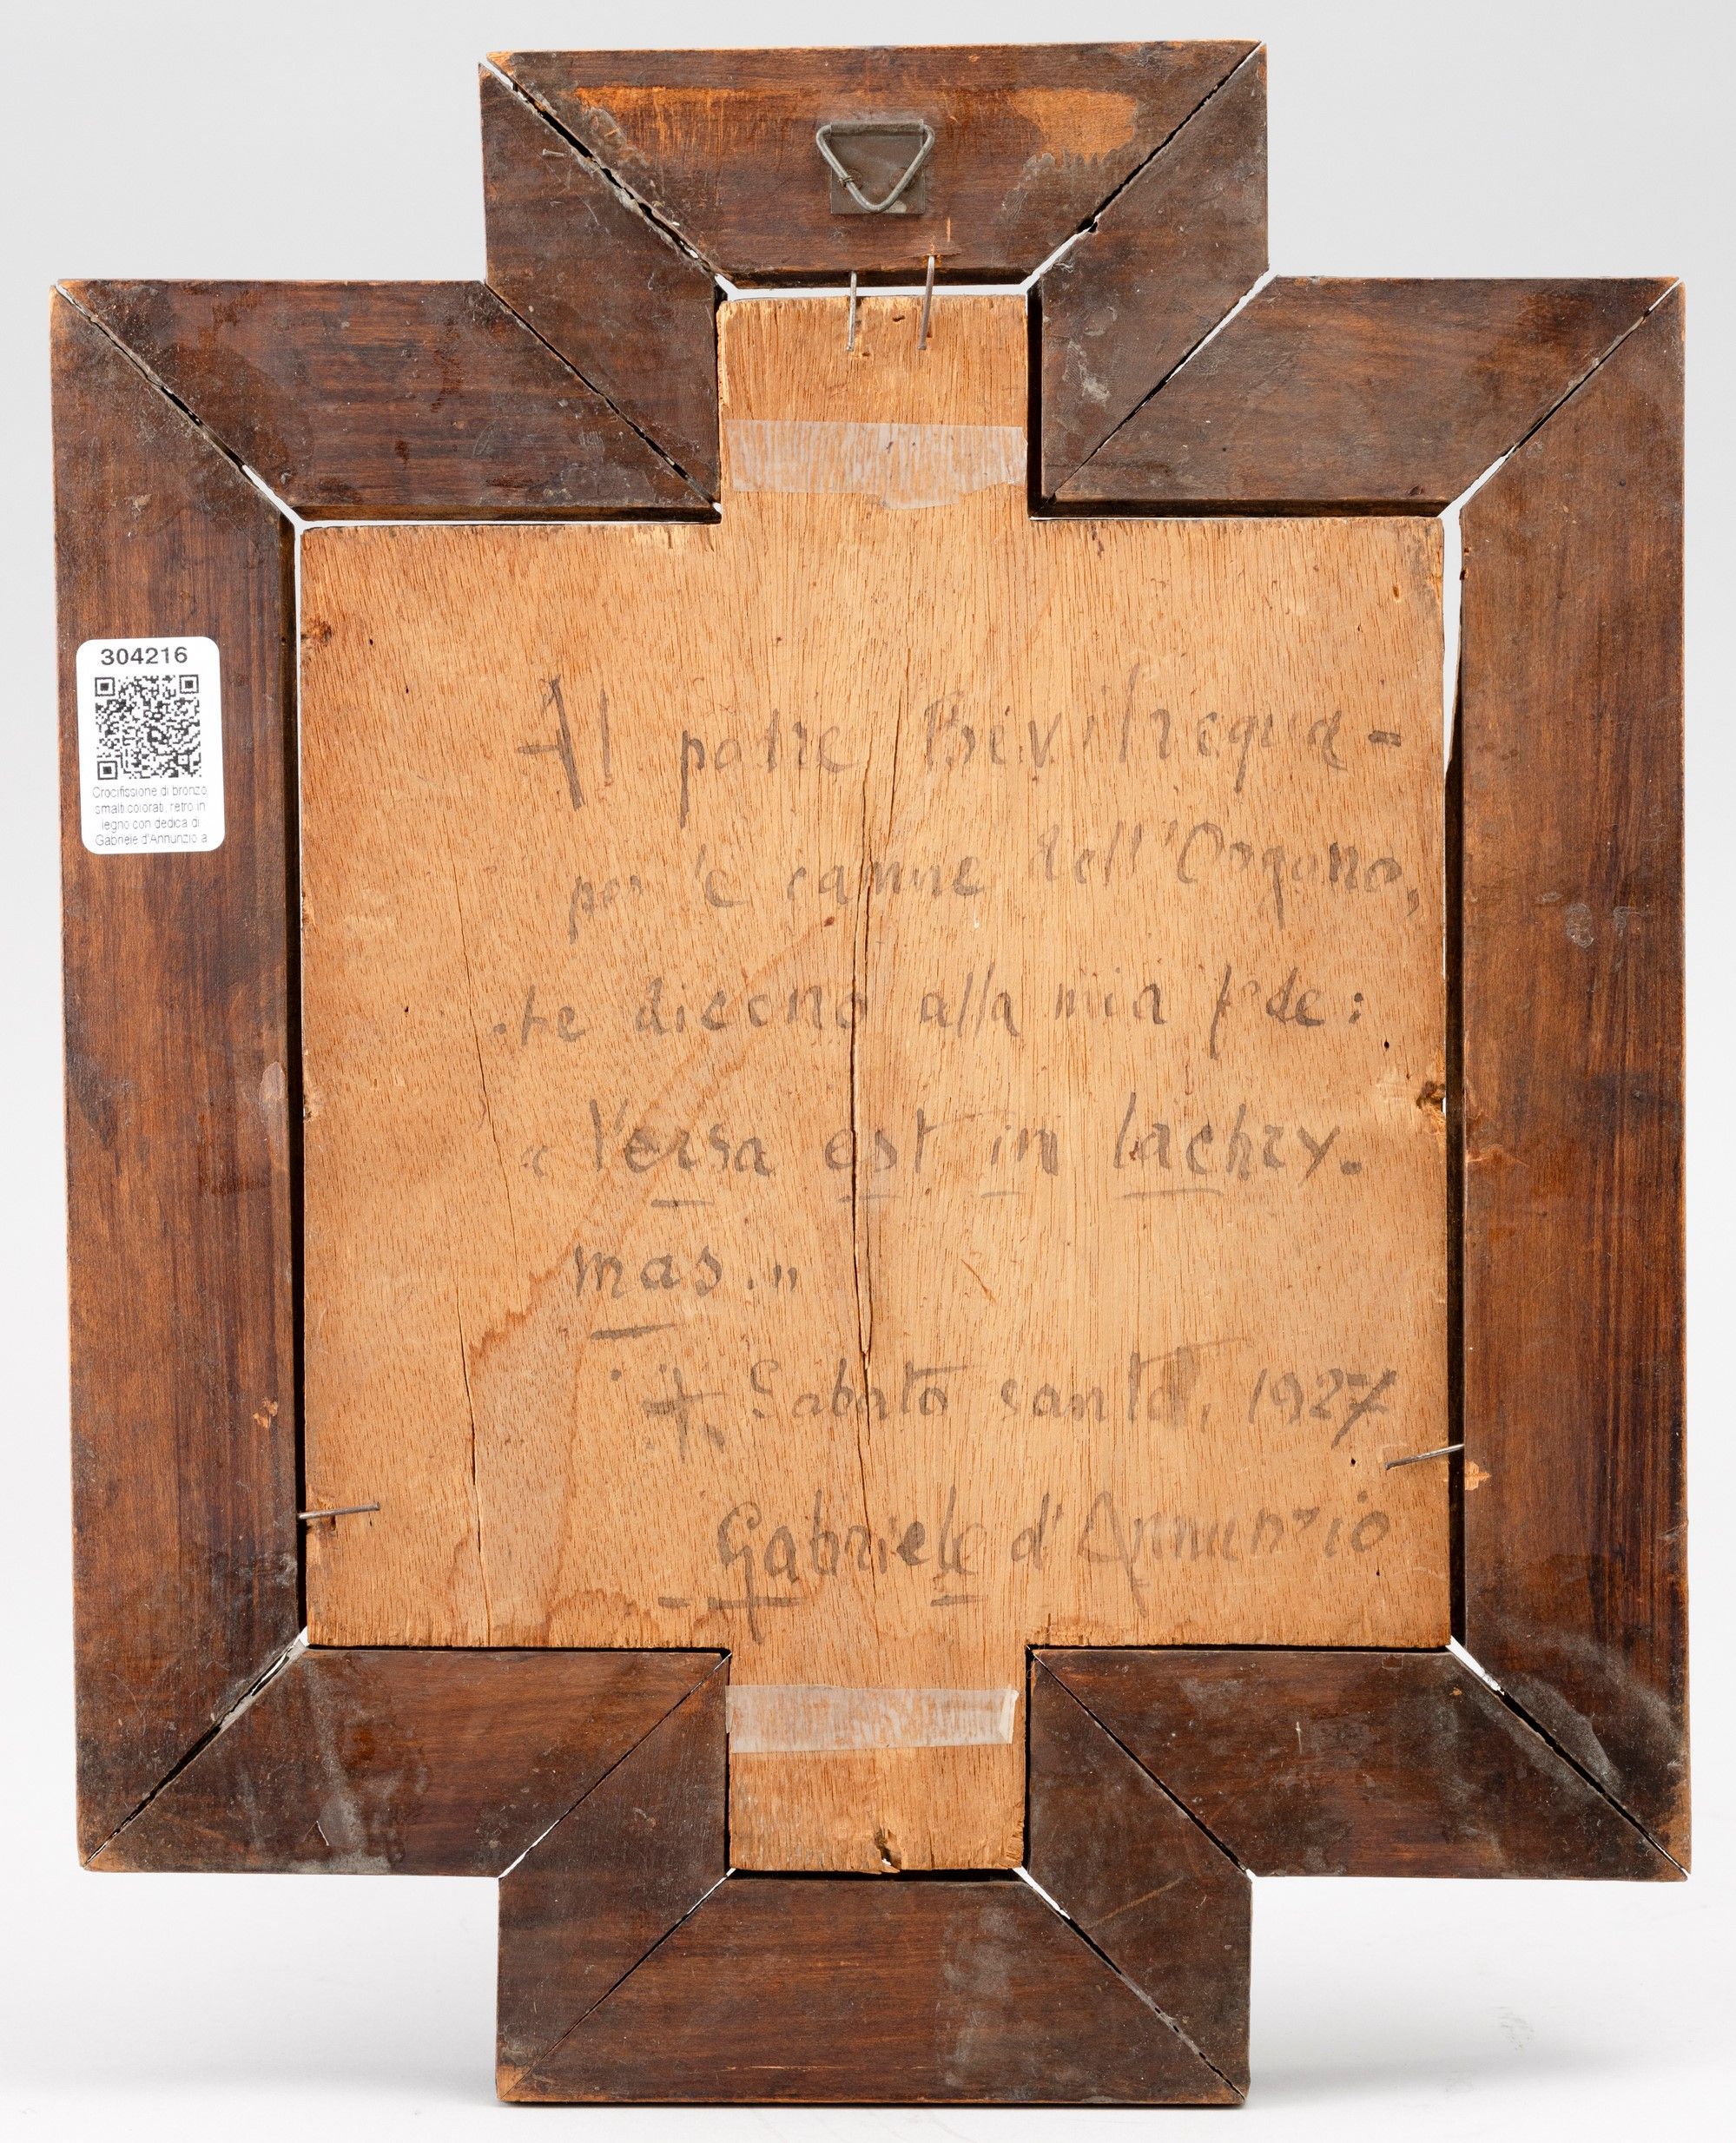 304216
Crocifissione di bronzo
smalti colorati, retro in
legno con dedica di
Gabriele d'Annunzio a
Al patre Bevilacqua -
per le canne dell'Organo,
che dicono alla mia fede:
« Versa est in lachry.
mas. »
† Sabato santo, 1927
Gabriele d'Annunzio